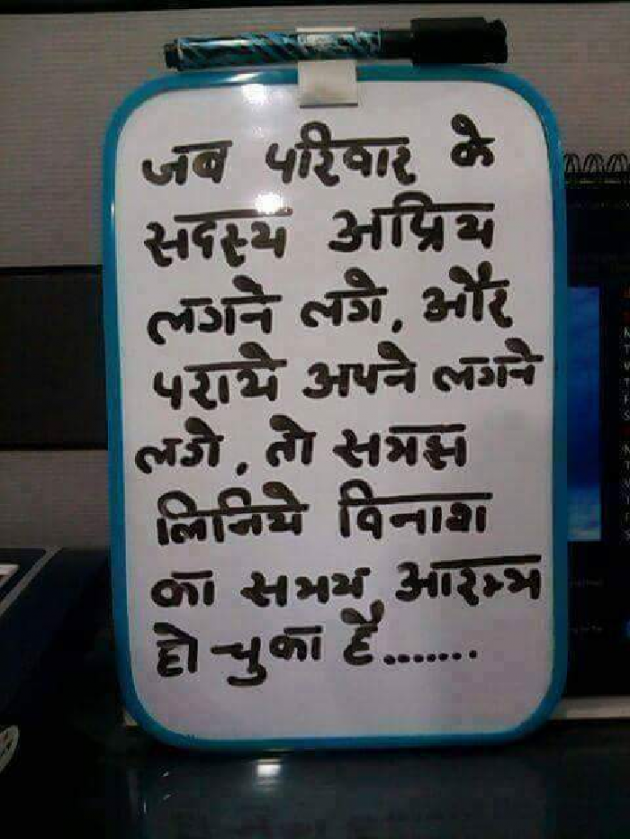 जब परिवार के
सदस्य अप्रिय
लगने लगे, और
पराये अपने लगने
लगे, तो समझ
लिजिये विनाश
का समय आरम्भ
हो चुका है.......